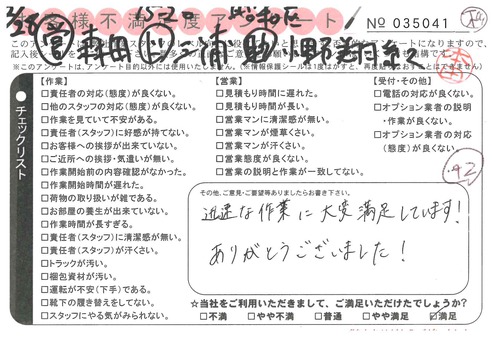 お客様不満足度アンケート!
No 035041
※このアンケートは、アンケート目的以外には使用いたしません。
チェックリスト
【作業】
□責任者の対応(態度)が良くない。
□他のスタッフの対応(態度)が良くない。
□作業を見ていて不安がある。
□責任者(スタッフ)に好感が持てない。
□お客様への挨拶が出来ていない。
□ご近所への挨拶・気遣いが無い。
□作業開始前の内容確認がなかった。
□作業開始時間が遅れた。
□荷物の取り扱いが雑である。
□お部屋の養生が出来ていない。
□作業時間が長すぎる。
□責任者(スタッフ)に清潔感が無い。
□責任者(スタッフ)が汗くさい。
□トラックが汚い。
□梱包資材が汚い。
□運転が不安(下手)である。
□靴下の履き替えをしてない。
□スタッフにやる気がみられない。
【営業】
□見積もり時間に遅れた。
□見積もり時間が長い。
□営業マンに清潔感が無い。
□営業マンが煙草くさい。
□営業マンが汗くさい。
□営業態度が良くない。
□営業の説明と作業が一致してない。
【受付・その他】
□電話の対応が良くない。
□オプション業者の説明
・作業が良くない。
□オプション業者の対応
(態度)が良くない。
42
その他、ご意見・ご要望等ありましたらお書き下さい。
迅速な作業に大変満足しています!
ありがとうございました!
☆当社をご利用いただきまして、ご満足いただけたでしょうか?
□不満 □やや不満 □普通 □やや満足 ☑満足